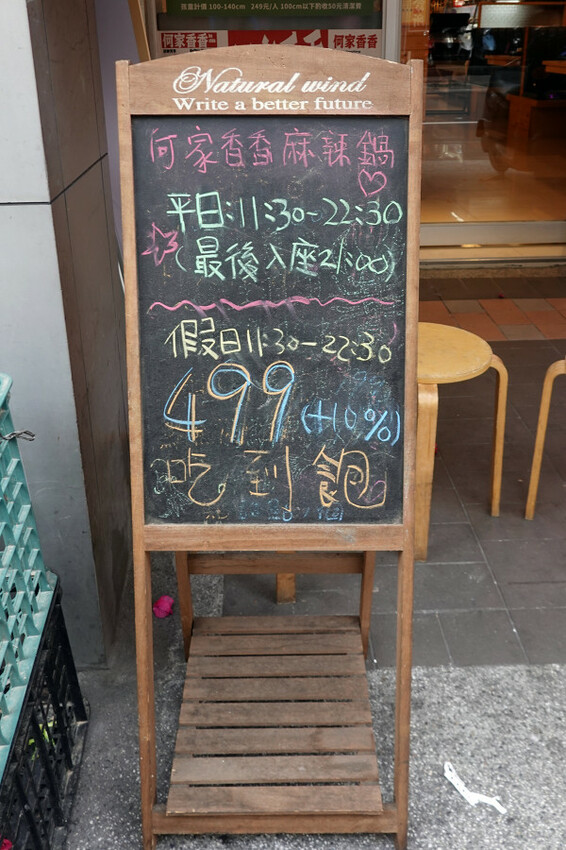 孩童計價 100-140cm 249元/人 100cm以下酌收50元清潔費
何家香香
何家香香
Natural wind
Write a better future
何家香香麻辣鍋
平日:11:30-22:30
(最後入座21:00)
假日11:30-22:30
499(+10%)
吃到飽